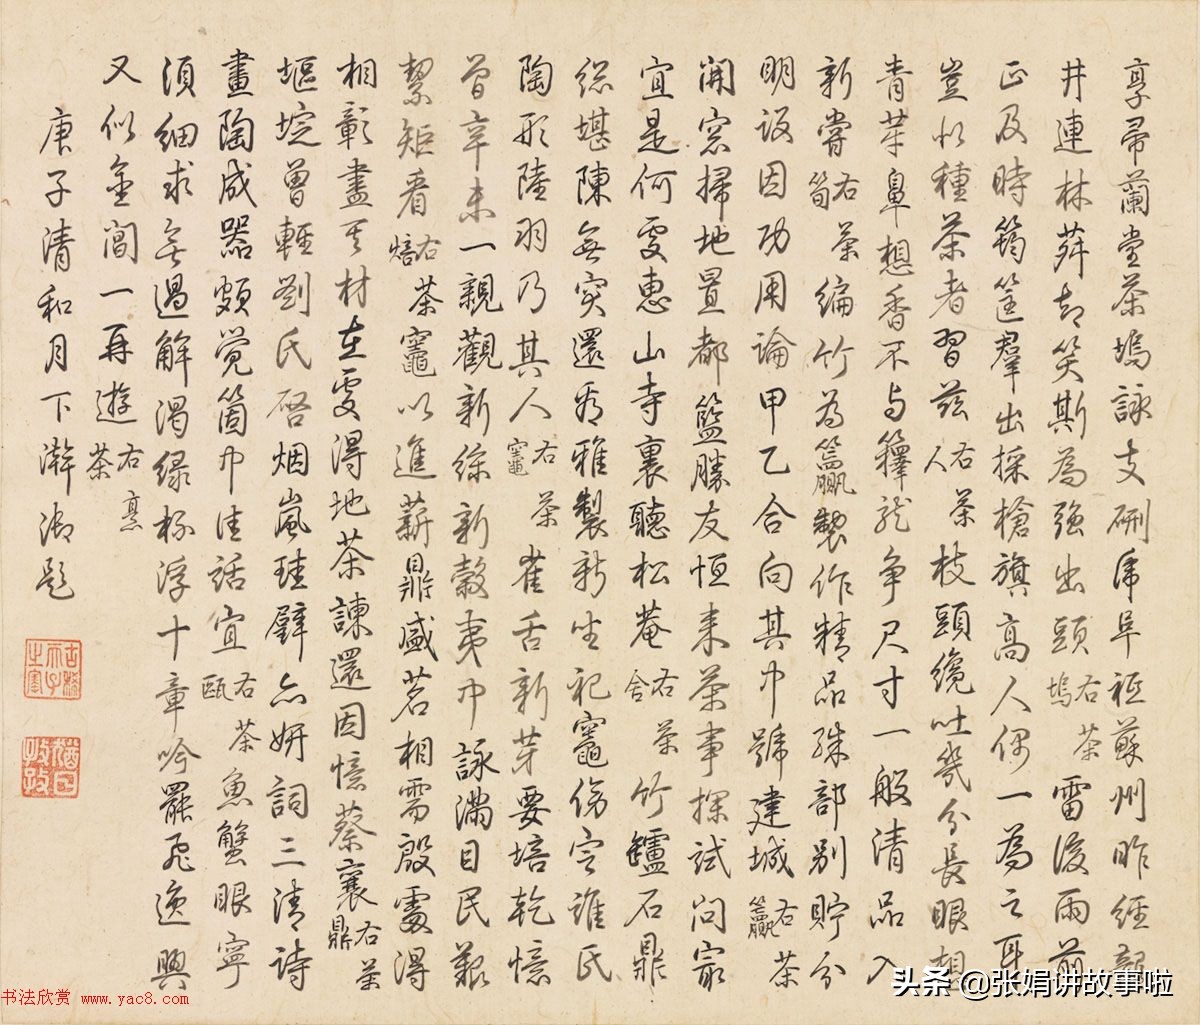 享帚蘭堂茶塢詠支硎虎阜祗蘇州昨經
井連林薜却笑斯為強出頭右茶塢雷後雨前
正及時筠筐羣出採槍旗高人偶一為之耳
豈似種茶者習茲右茶人枝頭纔吐幾分長眼想
青芽鼻想香不与籜龍爭尺寸一般清品入
新嘗右茶筍編竹為籯製作精品殊部別貯分
明設因功用論甲乙合向其中號建城右茶籯
開窓掃地置都籃勝友恒来茶事探試問寂
宜是何處惠山寺裏聽松菴右茶舍竹罏石鼎
総堪陳無突還看雅製新坐祀竈傍寧誰氏
陶形陸羽乃其人右茶竈雀舌新芽要培乾憶
曾辛未一親觀新絲新穀夷中詠滿目民艱
絜矩看右茶焙竈以進薪鼎盛茗相需殷處得
相彰盡其材在處得地茶諫還因憶蔡襄右茶鼎
曾輕劉氏啓烟嵐珪璧亦妍詞三清詩
畫陶成器頗覺箇中佳話宜右茶甌魚蟹眼寧
須細求無過解渴綠杯浮十章吟罷飛逸興
又似金閶一再遊右烹茶
庚子清和月下澣御題
古稀天子之寶
猶日孜孜
书法欣赏 www.yac8.com
头条 @张娟讲故事啦